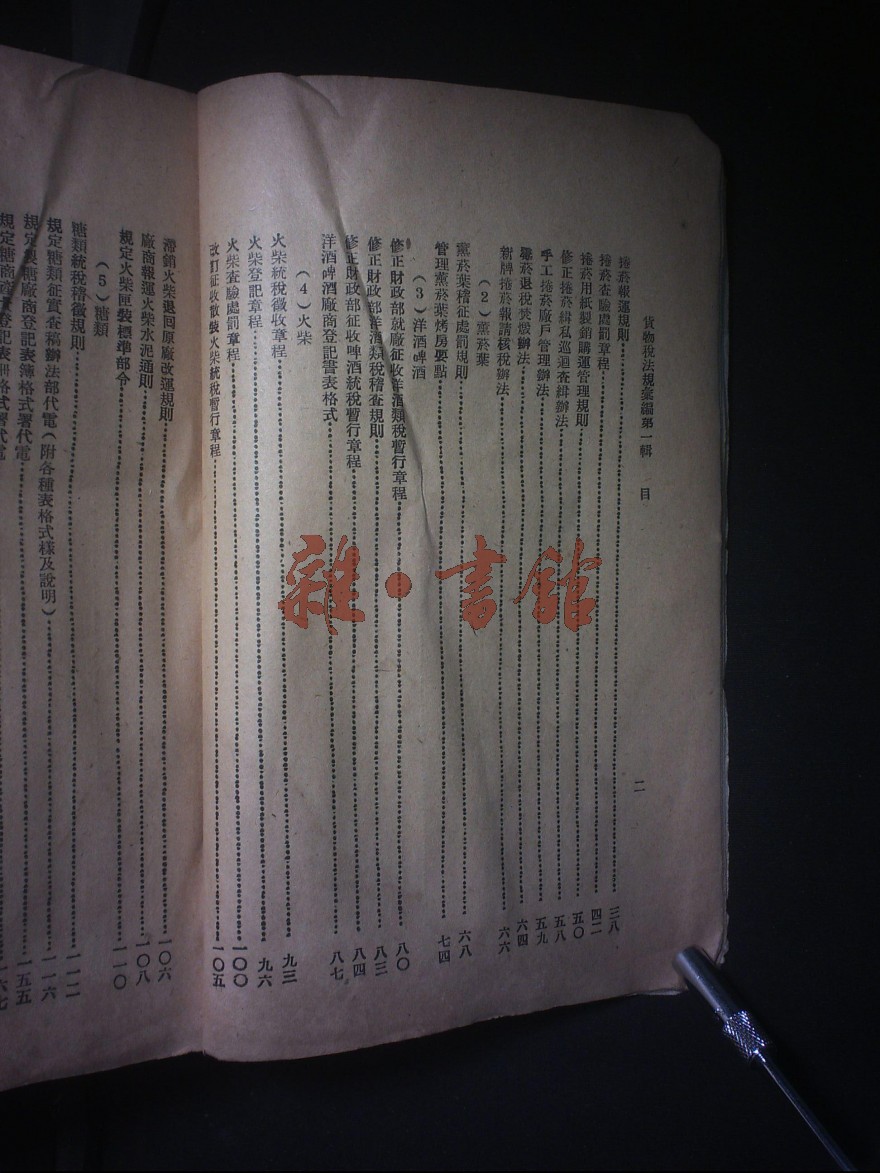 貨物稅法規彙編第一輯 目 二
捲菸報運規則 三八
捲菸查驗處罰章程 四二
捲菸用紙製銷購運管理規則 五〇
修正捲菸緝私巡迴查緝辦法 五八
手工捲菸廠戶管理辦法 五九
菸退稅焚燬辦法 六四
新牌捲菸報請核稅辦法 六六
(2)薰菸葉
薰菸葉稽征處罰規則 六八
管理薰菸葉烤房要點 七四
(3)洋酒啤酒
修正財政部就廠征收洋酒類稅暫行章程 八〇
修正財政部洋酒類稅稽查規則 八三
修正財政部征收啤酒統稅暫行章程 八四
洋酒啤酒廠商登記書表格式 八七
(4)火柴
火柴統稅徵收章程 九三
火柴登記章程 九六
火柴查驗處罰章程 一〇〇
改訂征收散裝火柴統稅暫行章程 一〇五
滯銷火柴退回原廠改運規則 一〇六
廠商報運火柴水泥通則 一〇八
規定火柴匣裝標準部令 一一〇
(5)糖類
糖類統稅稽徵規則 一一二
規定糖類征實查稿辦法部代電(附各種表格式樣及說明) 一一六
規定製糖廠商登記表簿格式署代電 一五五
規定糖商 登記表冊格式署代電 一六七
雜·書館